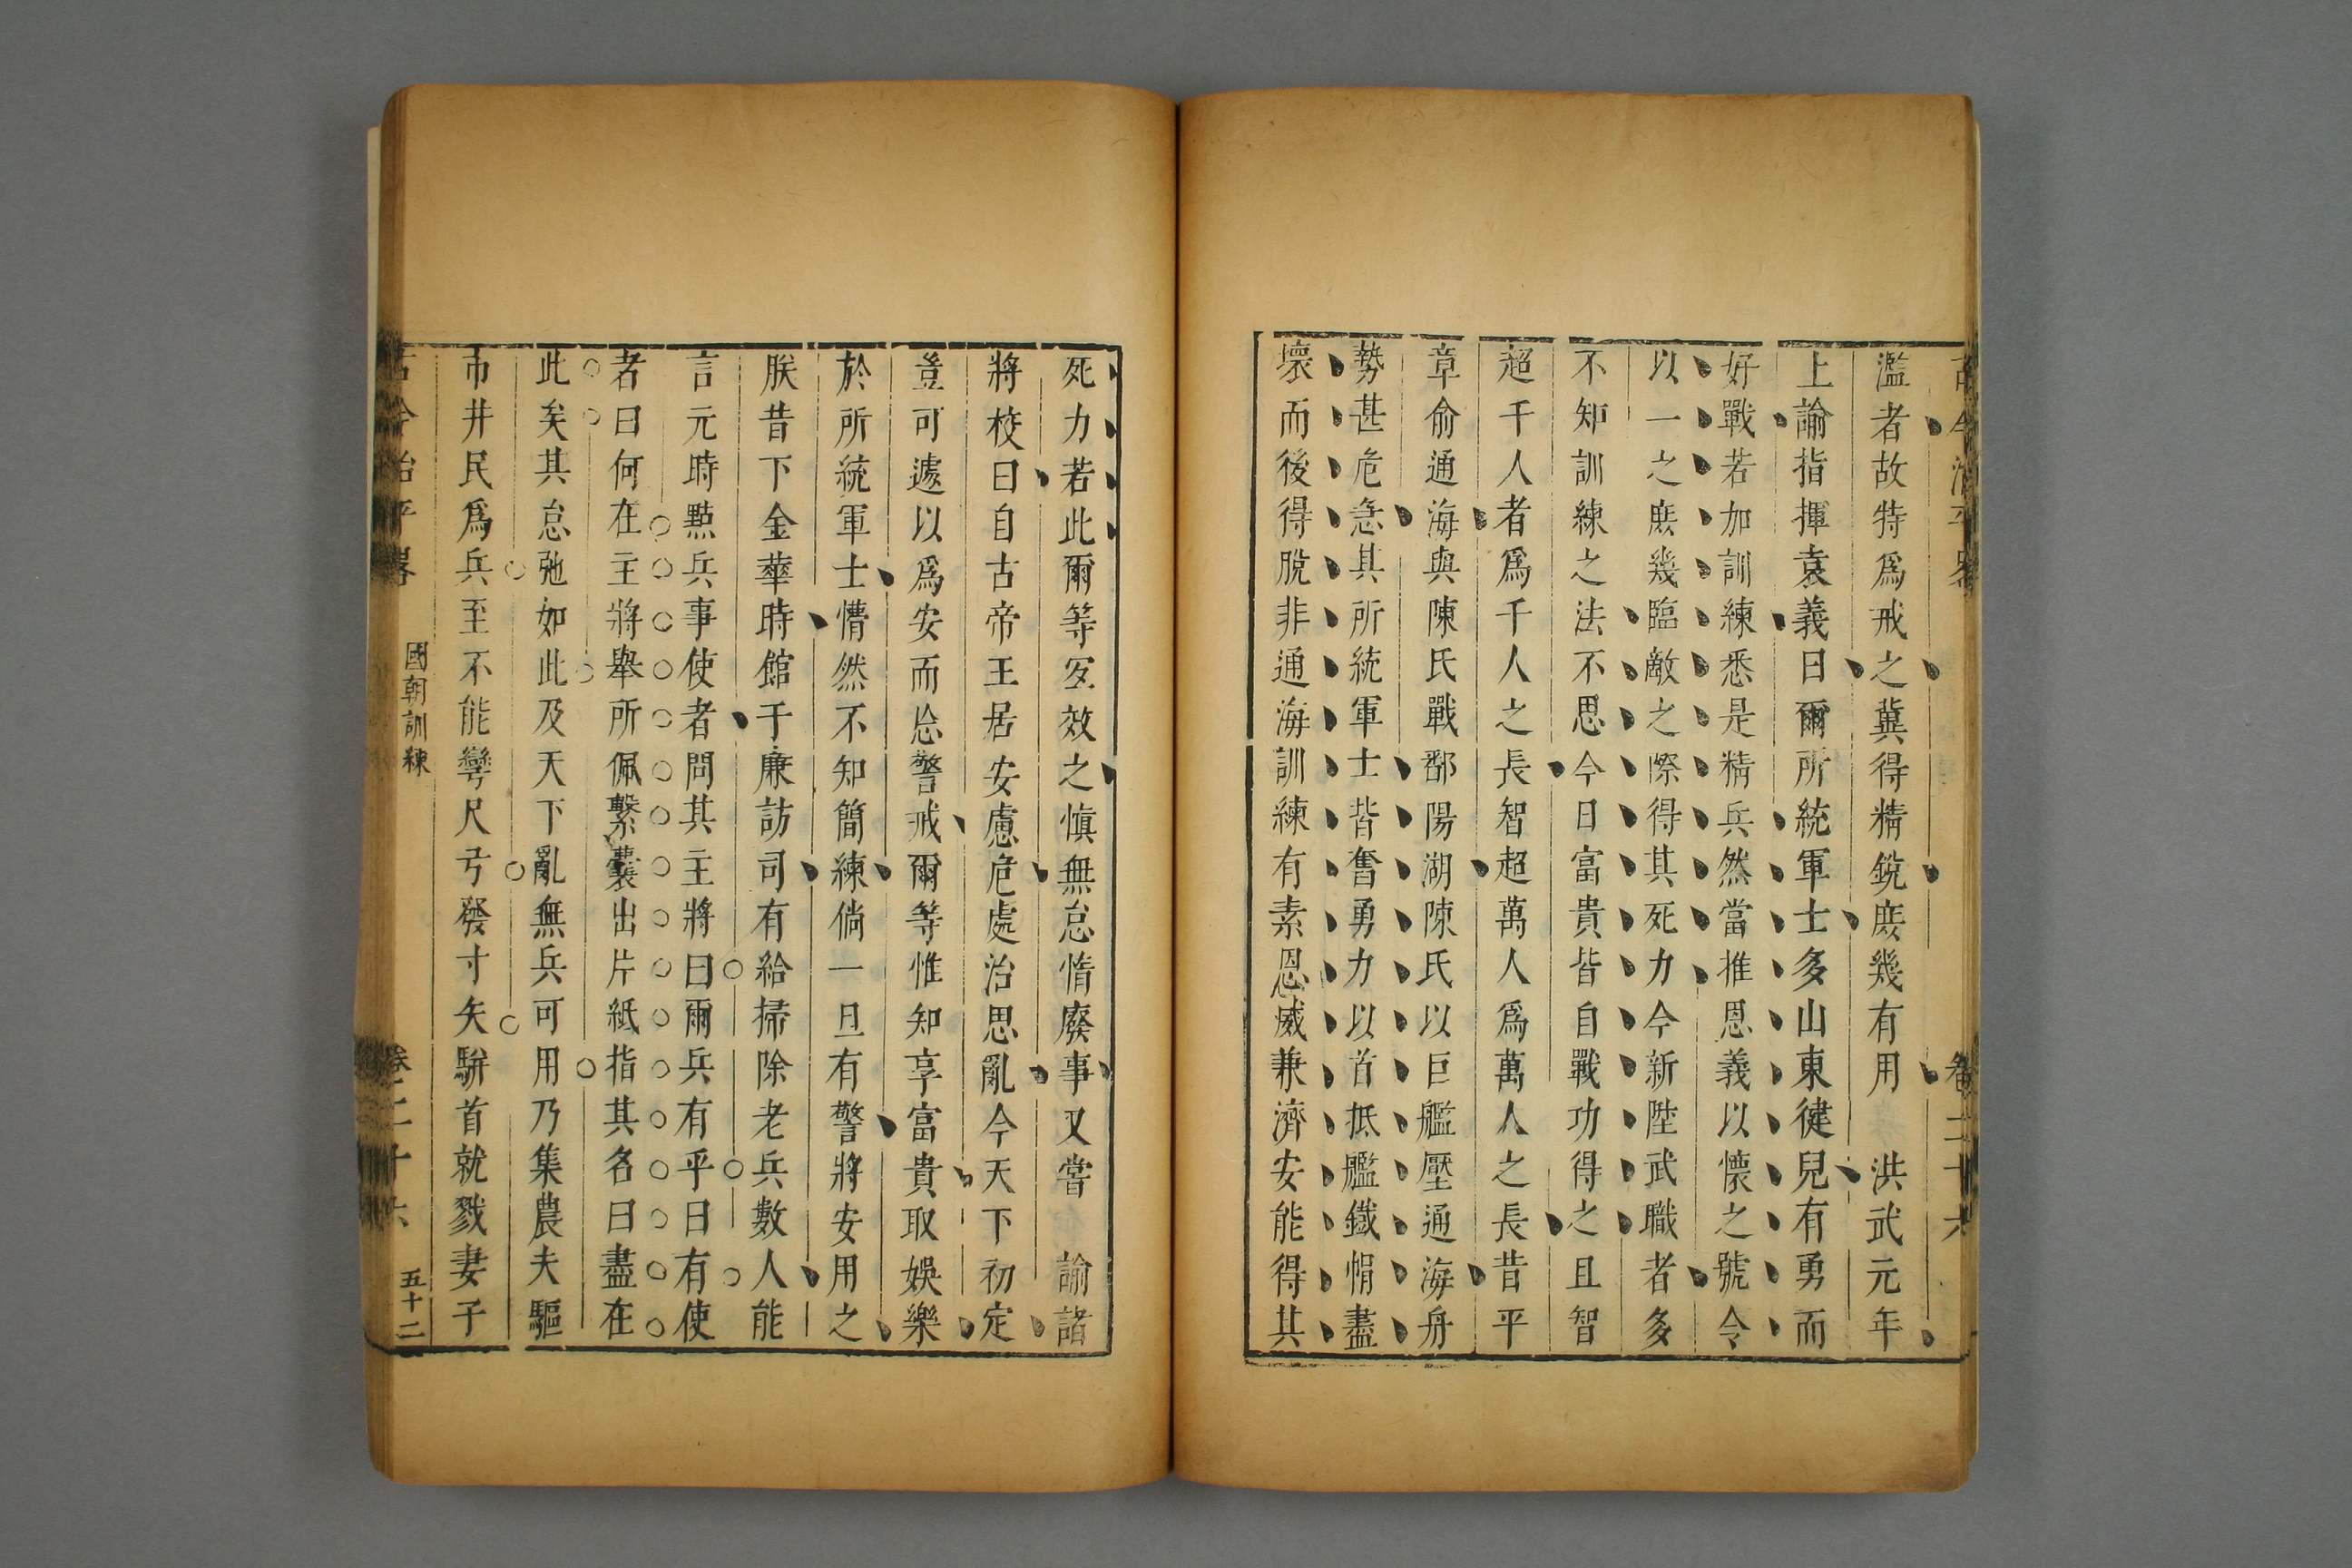 濫者故特爲戒之冀得精銳庻幾有用 洪武元年
上諭指揮袁義曰爾所統軍士多山東健兒有勇而
好戰若加訓練悉是精兵然當推恩義以懷之號令
以一之庻幾臨敵之際得其死力今新陞武職者多
不知訓練之法不思今日富貴皆自戰功得之且智
超千人者爲千人之長智超萬人爲萬人之長昔平
章俞通海與陳氏戰鄱陽湖陳氏以巨艦壓通海舟
勢甚危急其所統軍士皆奮勇力以首抵艦鐵帽盡
壞而後得脫非通海訓練有素恩威兼濟安能得其
死力若此爾等宐效之愼無怠惰廢事又嘗 諭諸
將校曰自古帝王居安慮危處治思亂今天下初定
豈可遽以爲安而怂警戒爾等惟知享富貴取娛樂
於所統軍士懵然不知簡練倘一旦有警將安用之
朕昔下金華時館于廉訪司有給掃除老兵數人能
言元時㸃兵事使者問其主將曰爾兵有乎曰有使
者曰何在主將舉所佩繫囊出片紙指其名曰盡在
此矣其怠弛如此及天下亂無兵可用乃集農夫驅
市井民爲兵至不能彎尺弓發寸矢駢首就戮妻子
古今治平畧
國朝訓練
卷二十六
五十二